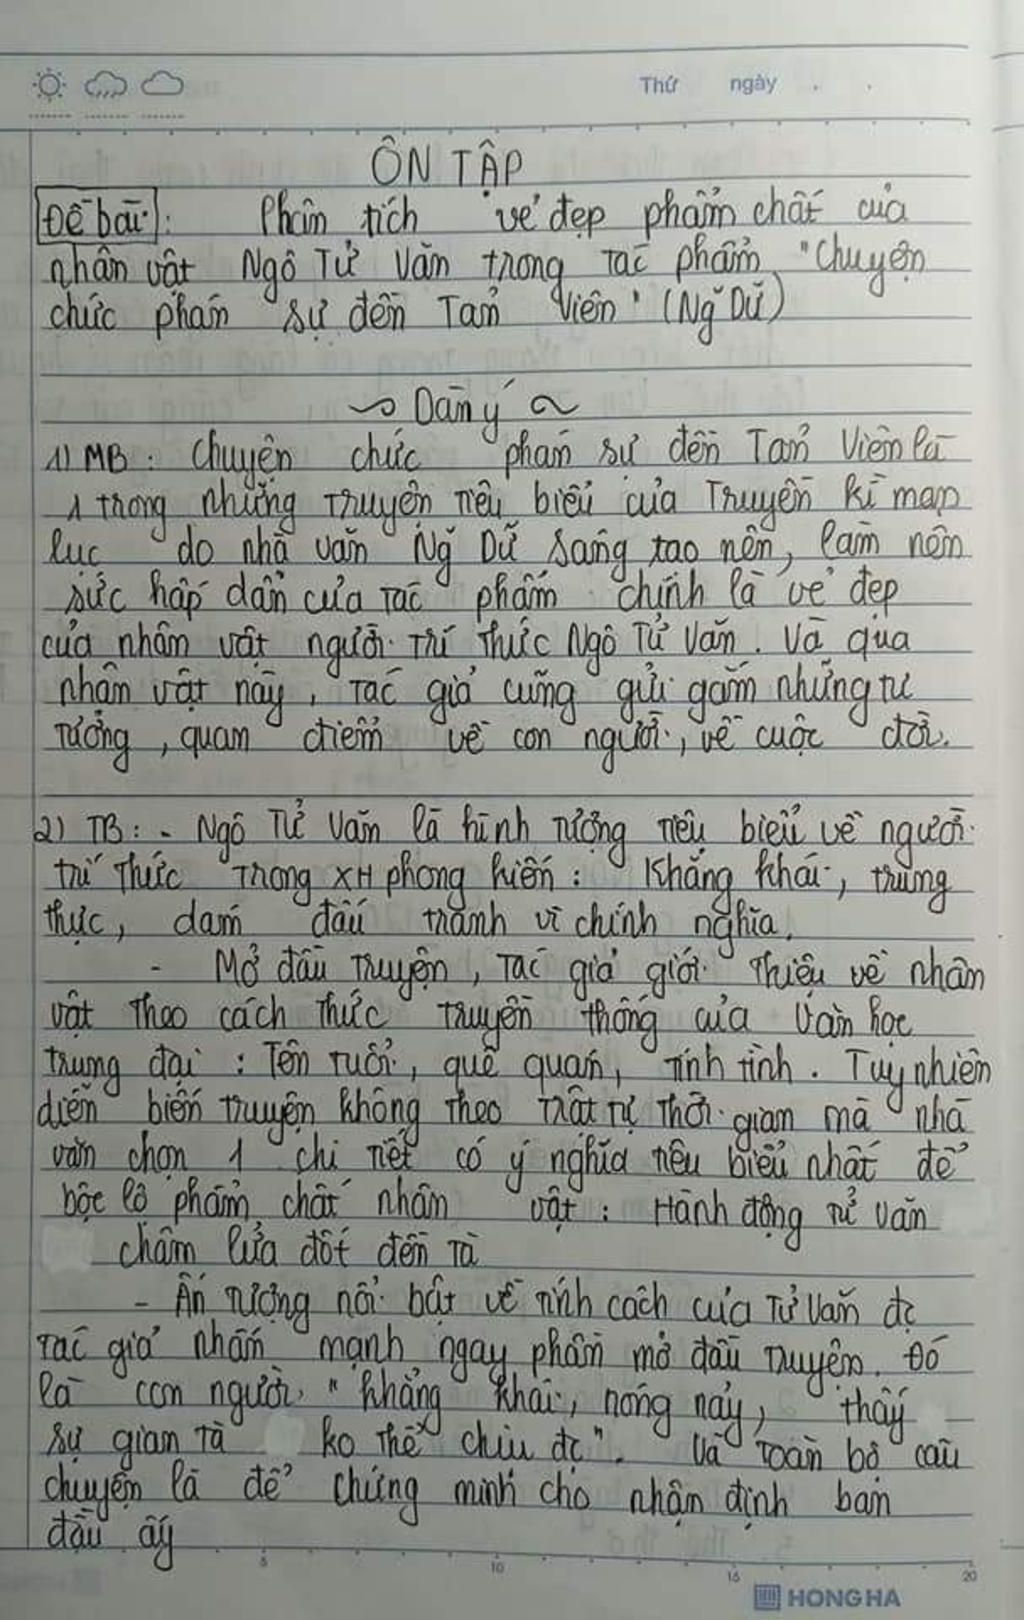 Thứ ngày
ÔN TẬP
Đề bài: Phân tích vẻ đẹp phẩm chất của
nhân vật Ngô Tử Văn trong tác phẩm "Chuyện
chức phán sự đền Tản Viên" (Ng Dữ)
Dàn ý
1) MB: Chuyện chức phán sự đền Tản Viên là
1 trong những truyện tiêu biểu của Truyền kì mạn
lục do nhà văn Ng Dữ sáng tạo nên, làm nên
sức hấp dẫn của tác phẩm chính là vẻ đẹp
của nhân vật người trí thức Ngô Tử Văn. Và qua
nhân vật này, tác giả cũng gửi gắm những tư
tưởng, quan điểm về con người, về cuộc đời.
2) TB: - Ngô Tử Văn là hình tượng tiêu biểu về người
trí thức trong XH phong kiến: Khẳng khái, trung
thực, dám đấu tranh vì chính nghĩa.
- Mở đầu truyện, tác giả giới thiệu về nhân
vật theo cách thức truyền thống của văn học
trung đại: Tên tuổi, quê quán, tính tình. Tuy nhiên
diễn biến truyện không theo trật tự thời gian mà nhà
văn chọn 1 chi tiết có ý nghĩa tiêu biểu nhất để
bộc lộ phẩm chất nhân vật: Hành động Tử Văn
châm lửa đốt đền tà
- Ấn tượng nổi bật về tính cách của Tử Văn đc
tác giả nhấn mạnh ngay phần mở đầu truyện. Đó
là con người "khẳng khái, nóng nảy, thấy
sự gian tà ko thể chịu đc". Và toàn bộ câu
chuyện là để chứng minh cho nhận định ban
đầu ấy
5 10 15 20
HONG HA